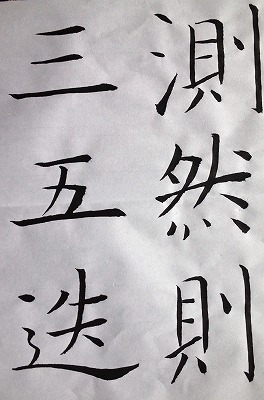 測然則
三五迭